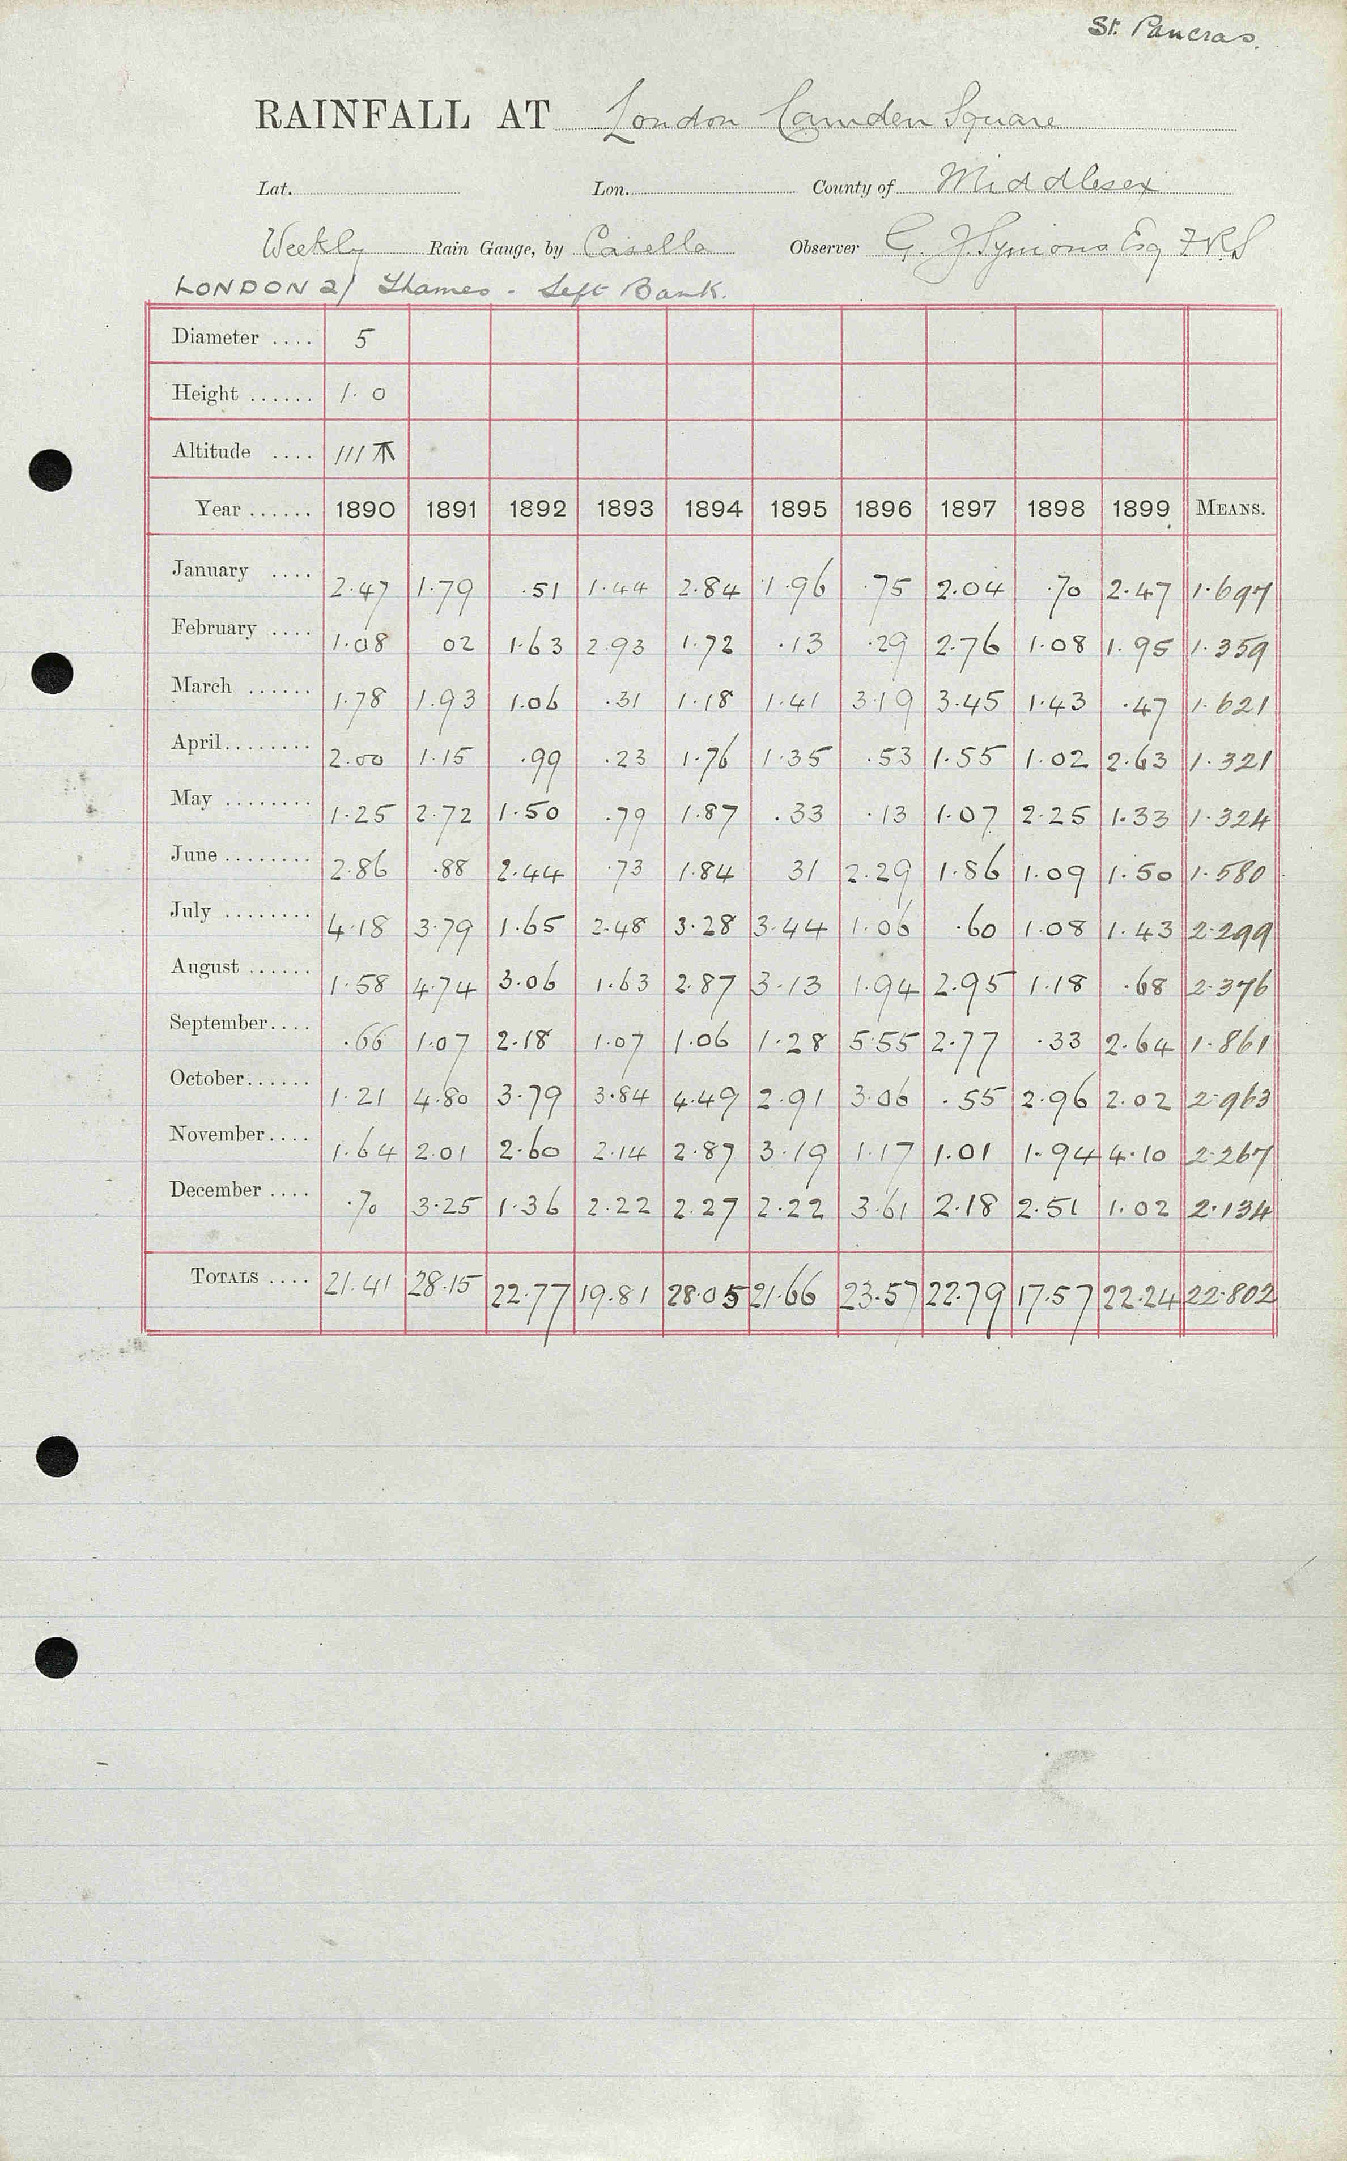 St. Pancras.
RAINFALL AT London Camden Square
Lat. Lon. County of Middlesex
Weekly Rain Gauge, by Casella Observer G. J. Symons Esq FRS
LONDON 2/ Thames - Left Bank.
Diameter .... 5
Height ...... 1. 0
Altitude .... 111
Year ...... 1890 1891 1892 1893 1894 1895 1896 1897 1898 1899 MEANS.
January .... 2.47 1.79 .51 1.44 2.84 1.96 .75 2.04 .70 2.47 1.697
February .... 1.08 02 1.63 2.93 1.72 .13 .29 2.76 1.08 1.95 1.359
March ...... 1.78 1.93 1.06 .31 1.18 1.41 3.19 3.45 1.43 .47 1.621
April........ 2.00 1.15 .99 .23 1.76 1.35 .53 1.55 1.02 2.63 1.321
May ........ 1.25 2.72 1.50 .79 1.87 .33 .13 1.07 2.25 1.33 1.324
June ........ 2.86 .88 2.44 .73 1.84 31 2.29 1.86 1.09 1.50 1.580
July ........ 4.18 3.79 1.65 2.48 3.28 3.44 1.06 .60 1.08 1.43 2.299
August ...... 1.58 4.74 3.06 1.63 2.87 3.13 1.94 2.95 1.18 .68 2.376
September.... .66 1.07 2.18 1.07 1.06 1.28 5.55 2.77 .33 2.64 1.861
October...... 1.21 4.80 3.79 3.84 4.49 2.91 3.06 .55 2.96 2.02 2.963
November.... 1.64 2.01 2.60 2.14 2.87 3.19 1.17 1.01 1.94 4.10 2.267
December .... .70 3.25 1.36 2.22 2.27 2.22 3.61 2.18 2.51 1.02 2.134
TOTALS .... 21.41 28.15 22.77 19.81 28.05 21.66 23.57 22.79 17.57 22.24 22.802